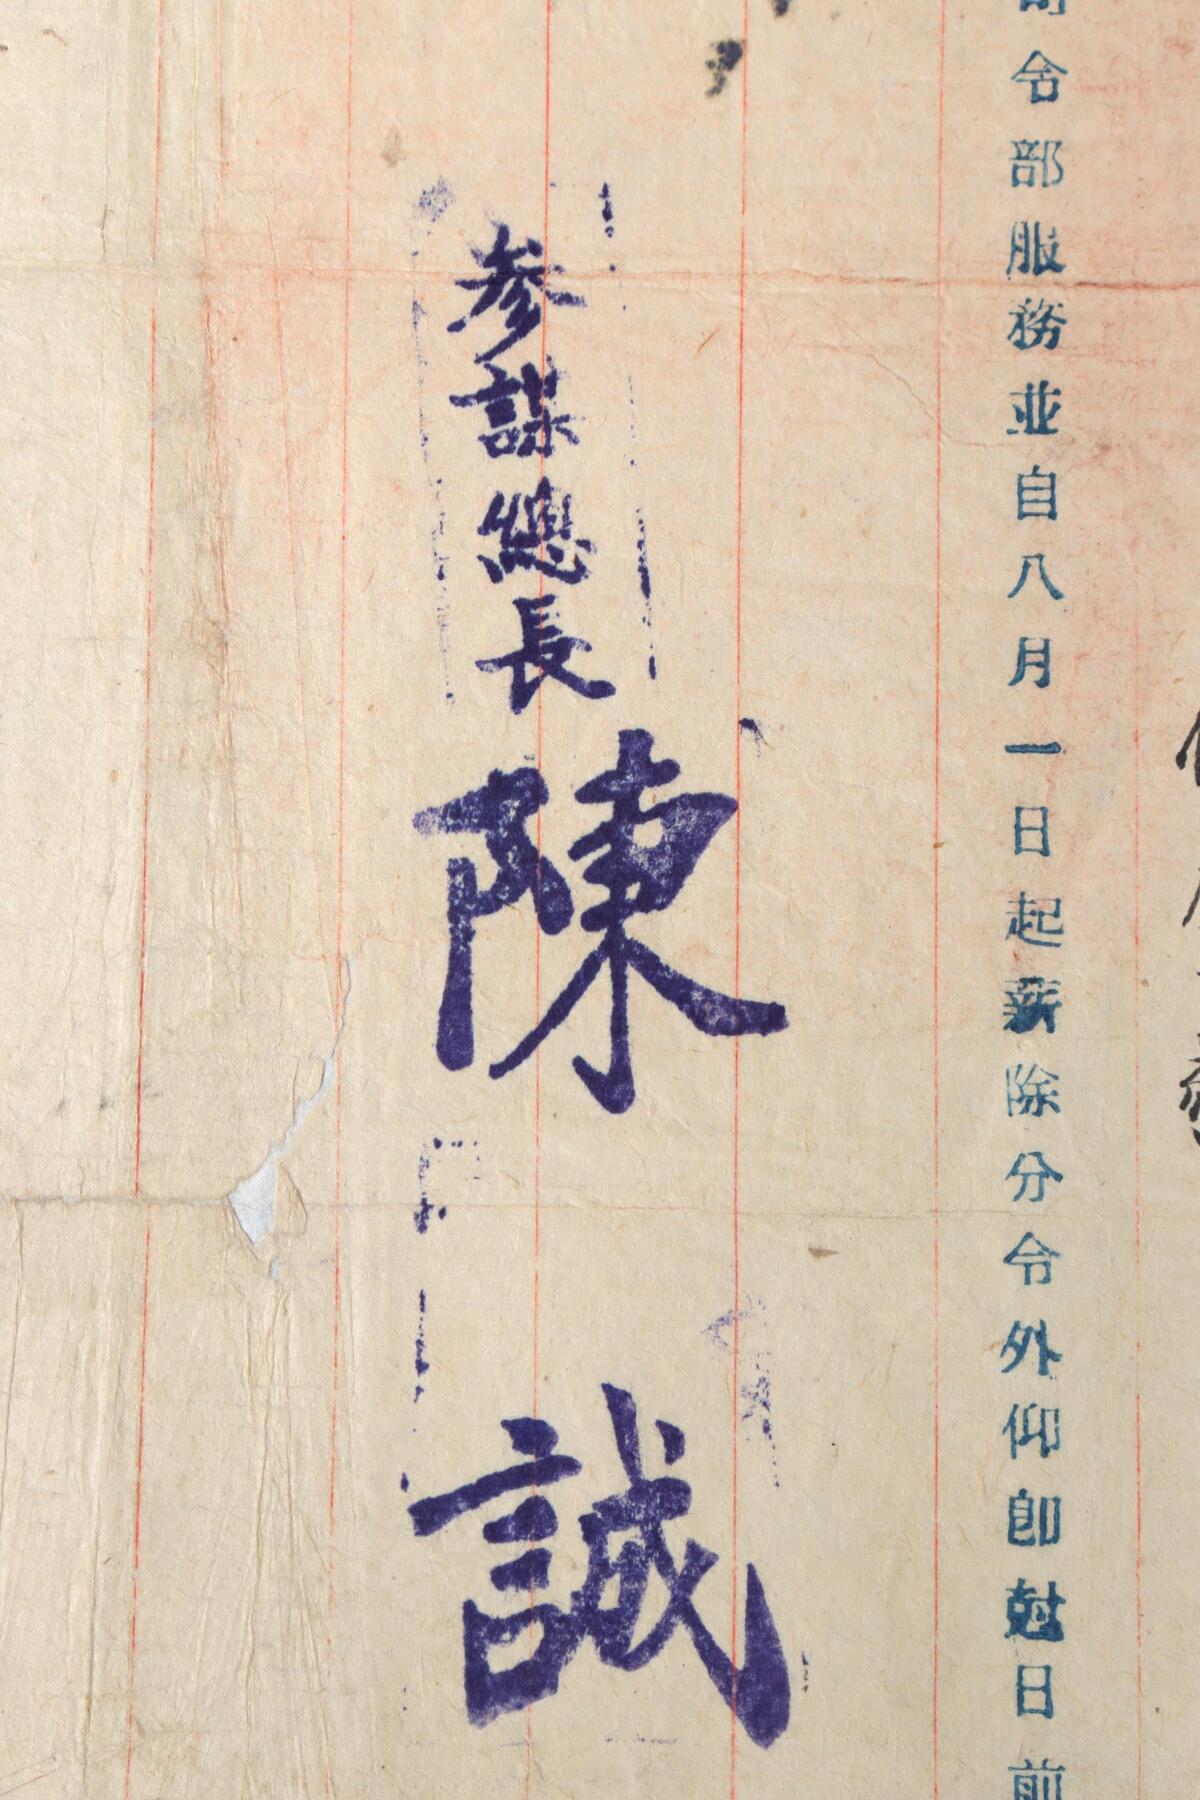 令部服務並自八月一日起薪除分令外仰即尅日前
參謀總長 陳誠